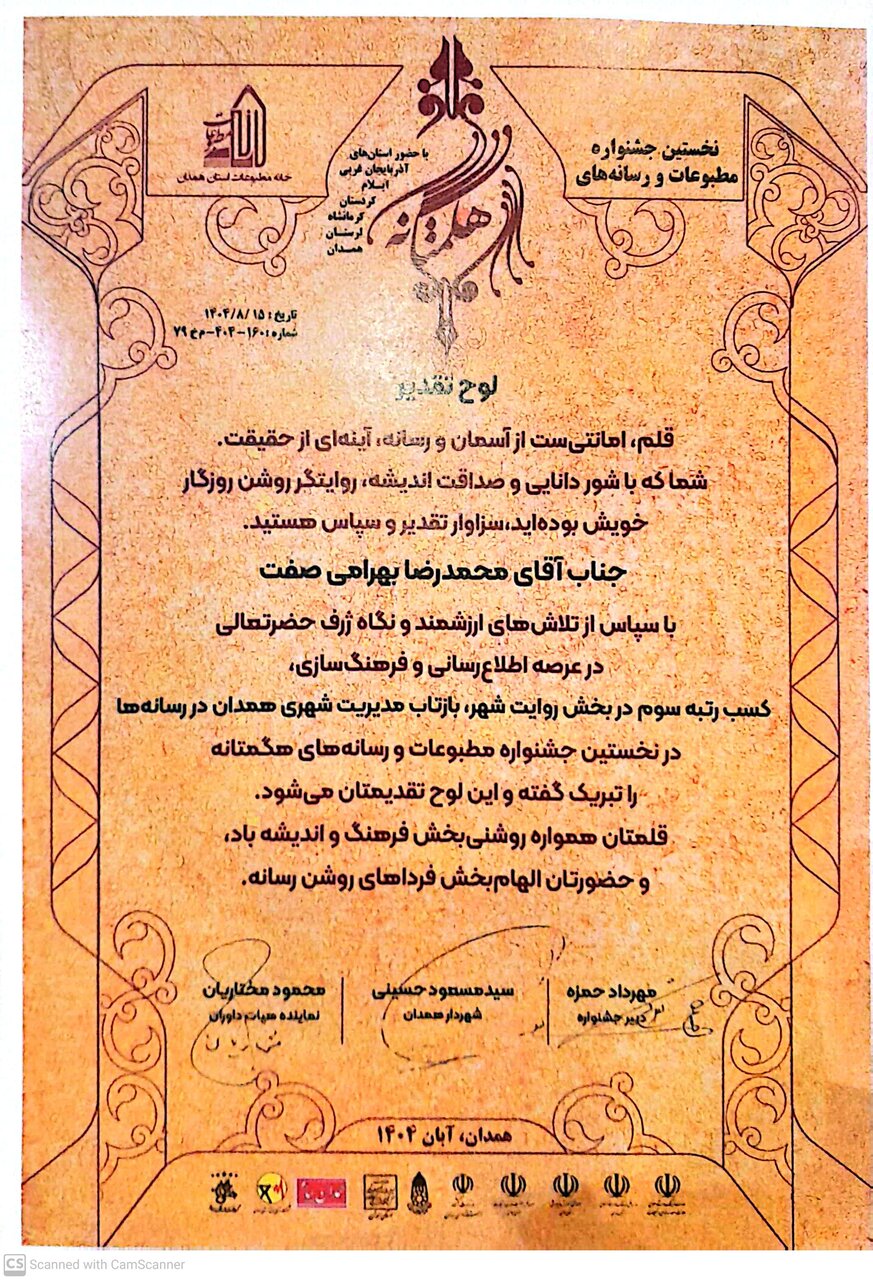 نخستین جشنواره
مطبوعات و رسانه‌های
هگمتانه
با حضور استان‌های
آذربایجان غربی
ایلام
کردستان
کرمانشاه
لرستان
همدان
خانه مطبوعات استان همدان
تاریخ: ۱۴۰۴/۸/۱۵
شماره: ۱۶۰-۴۰۴-م‌خ ۷۹
لوح تقدیر
قلم، امانتی‌ست از آسمان و رسانه، آینه‌ای از حقیقت.
شما که با شور دانایی و صداقت اندیشه، روایتگر روشن روزگار
خویش بوده‌اید،سزاوار تقدیر و سپاس هستید.
جناب آقای محمدرضا بهرامی صفت
با سپاس از تلاش‌های ارزشمند و نگاه ژرف حضرتعالی
در عرصه اطلاع‌رسانی و فرهنگ‌سازی،
کسب رتبه سوم در بخش روایت شهر، بازتاب مدیریت شهری همدان در رسانه‌ها
در نخستین جشنواره مطبوعات و رسانه‌های هگمتانه
را تبریک گفته و این لوح تقدیمتان می‌شود.
قلمتان همواره روشنی‌بخش فرهنگ و اندیشه باد،
و حضورتان الهام‌بخش فرداهای روشن رسانه.
مهرداد حمزه
دبیر جشنواره
سیدمسعود حسینی
شهردار همدان
محمود مختاریان
نماینده هیات داوران
همدان، آبان ۱۴۰۴
CS Scanned with CamScanner